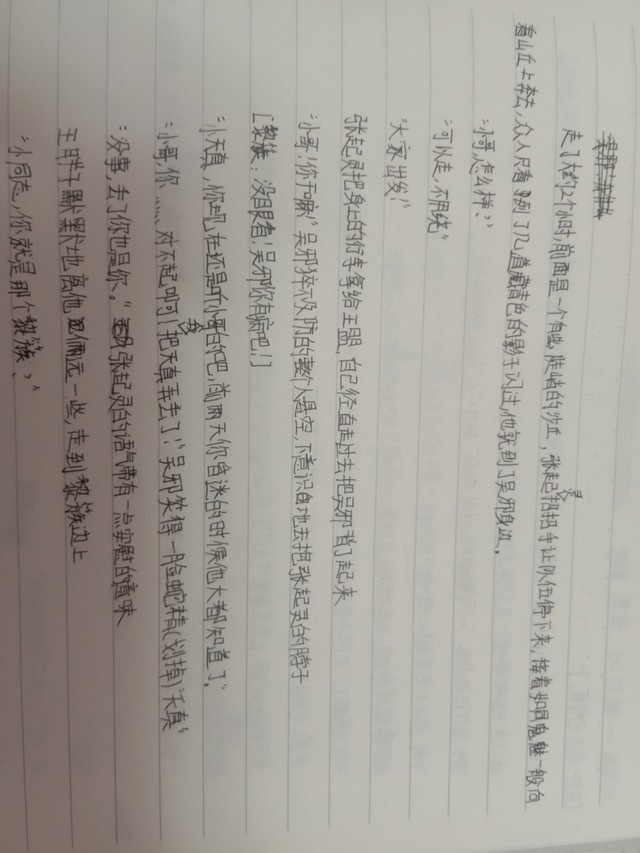 走了大约2个小时,前面是一个有些陡峭的沙丘,张起灵招招手让队伍停下来,接着如同鬼魅一般向
着山丘上奔去,众人只看到了几道藏青色的影子闪过,他就到了吴邪身边。
“小哥,怎么样?”
“可以走,不用绕”
“大家出发!”
张起灵把身上的行李拿给王盟,自己径直走过去把吴邪背了起来
“小哥!你干嘛!”吴邪猝不及防的整个人悬空,下意识的地去抱张起灵的脖子
[黎簇:没眼看!吴邪你有病吧!]
“小天真,你现在还是听小哥的吧,前两天你昏迷的时候他大都知道了”
“小哥,你……对不起啊,我把天真弄丢了!”吴邪笑得一脸蛇精(划掉)天真”
“没事,丢了你也是你。”张起灵的语气带有一点安慰的意味
王胖子默默地离他俩远一些,走到黎簇边上
“小同志,你就是那个黎簇?”